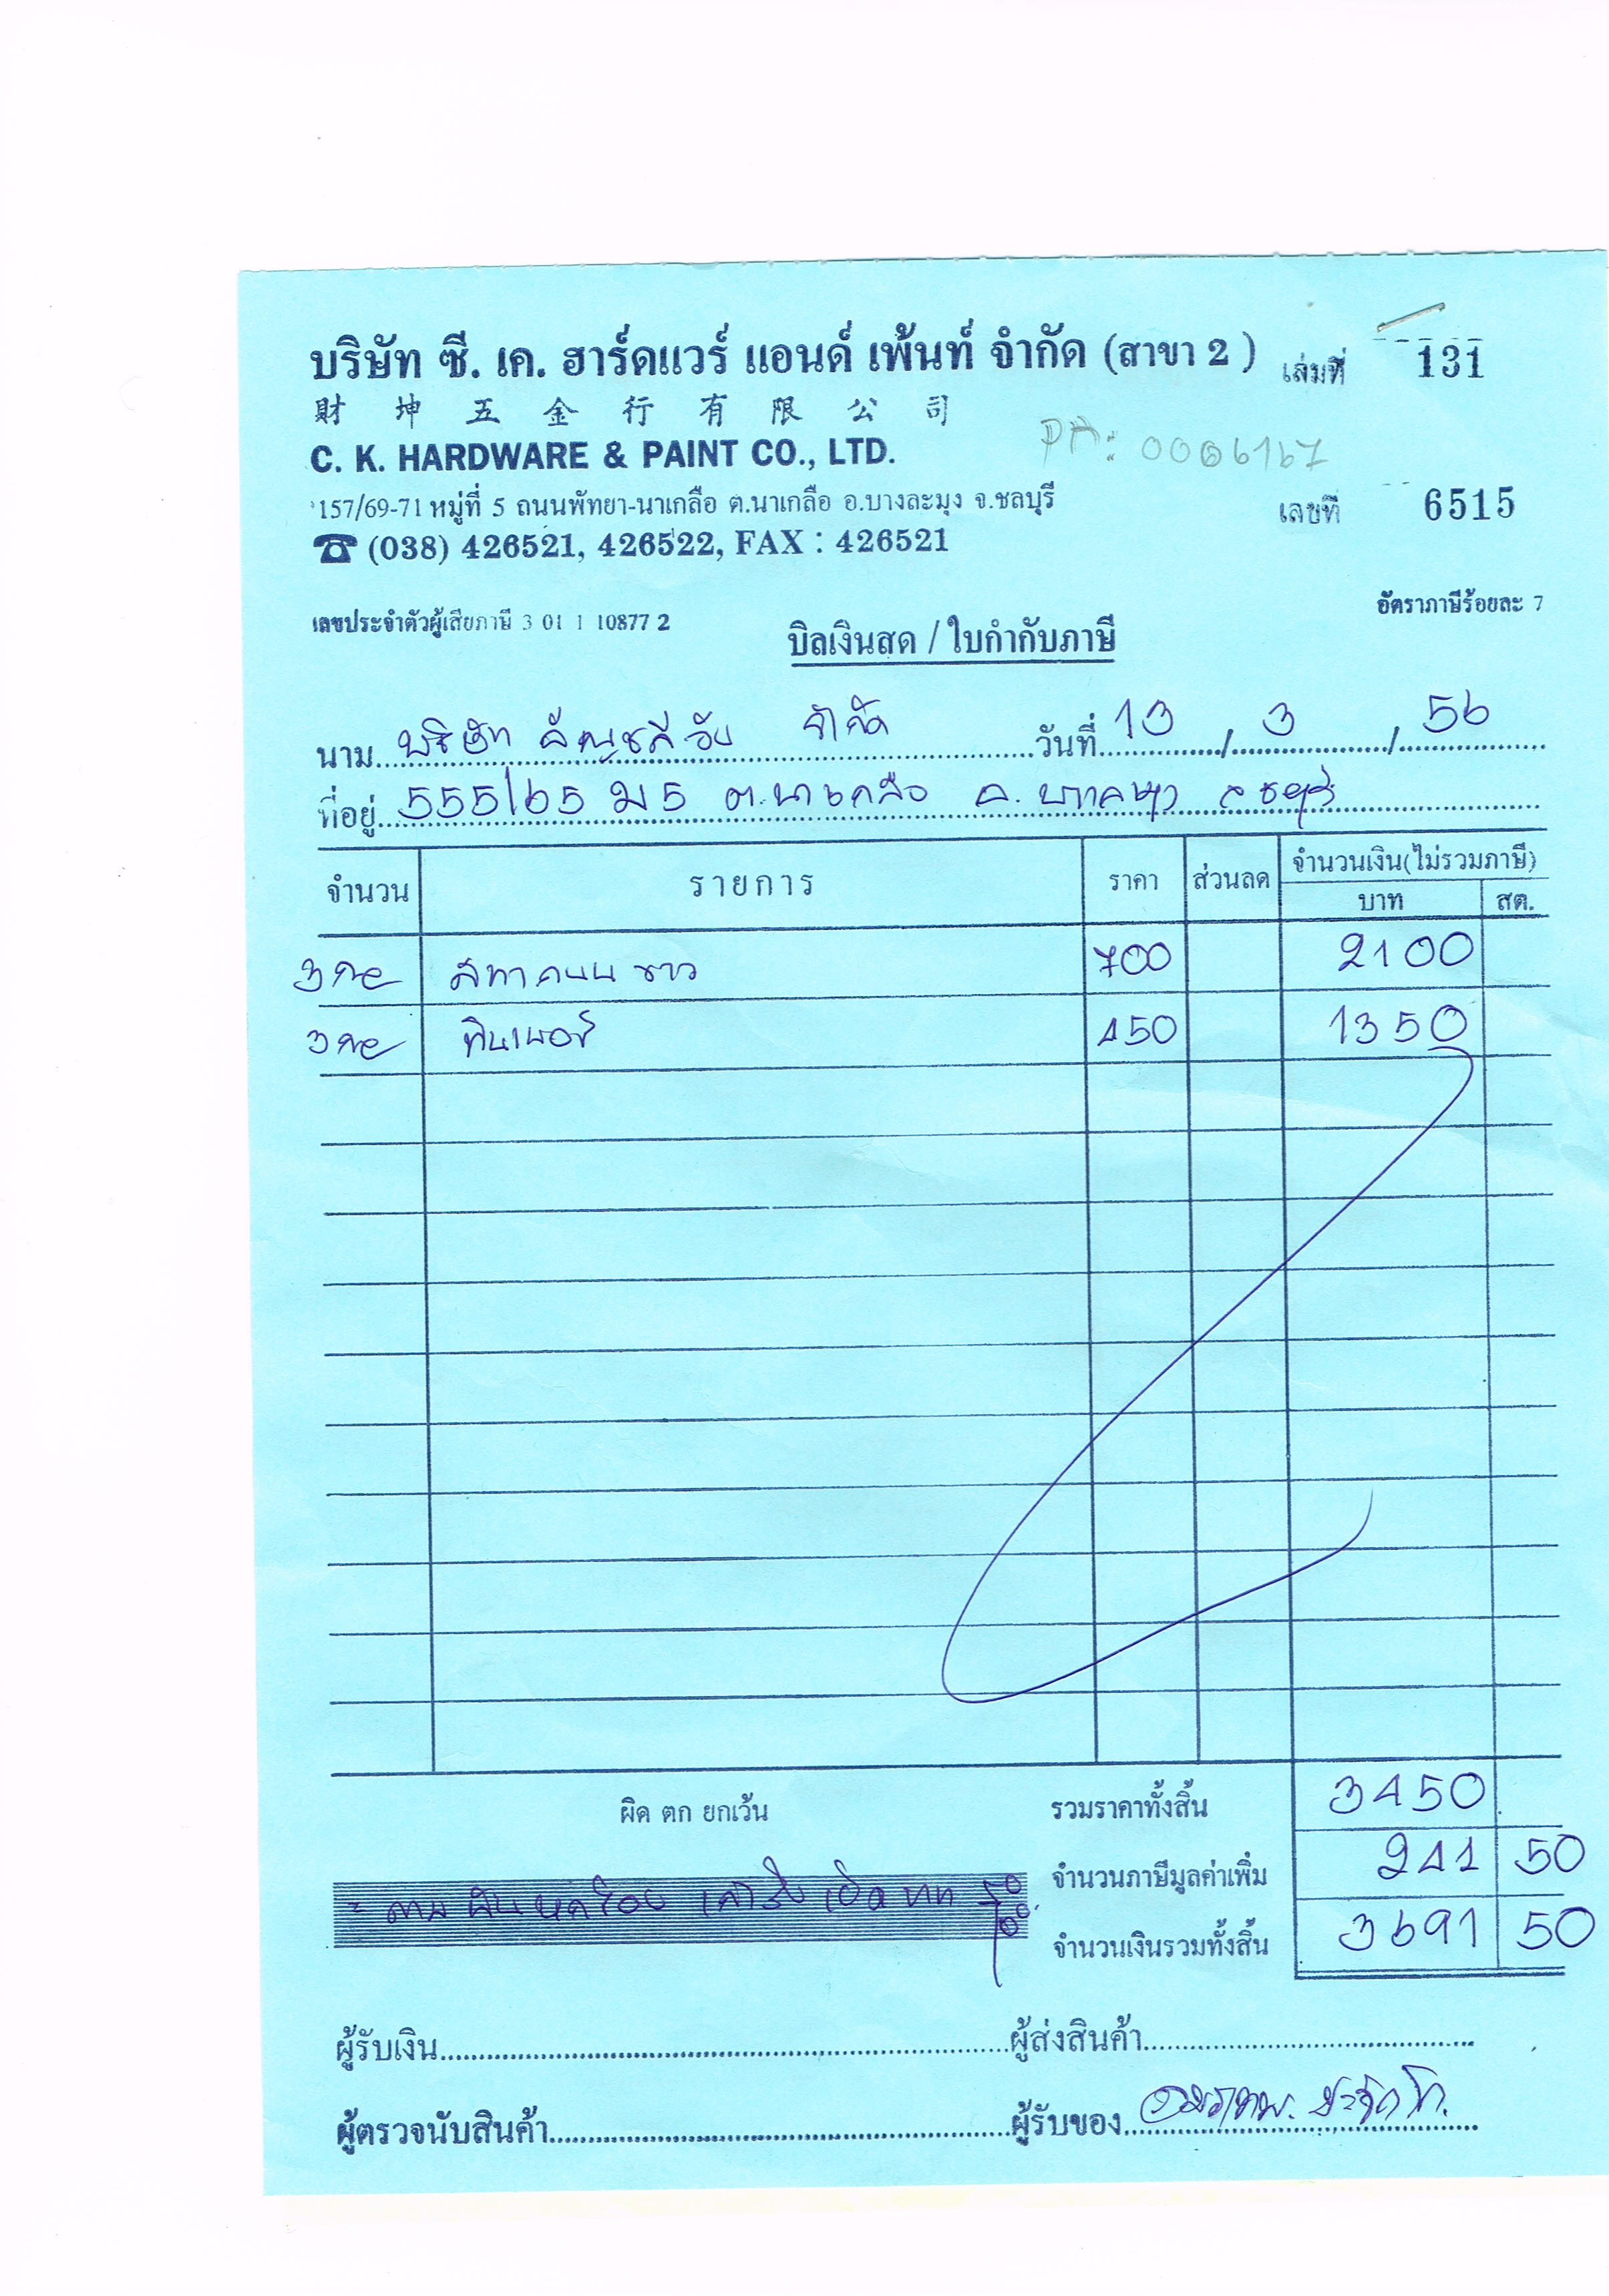 บริษัท ซี. เค. ฮาร์ดแวร์ แอนด์ เพ้นท์ จำกัด (สาขา 2 ) เล่มที่ 131
財坤五金行有限公司
C. K. HARDWARE & PAINT CO., LTD. PA: 0006167
157/69-71 หมู่ที่ 5 ถนนพัทยา-นาเกลือ ต.นาเกลือ อ.บางละมุง จ.ชลบุรี เลขที่ 6515
☎ (038) 426521, 426522, FAX : 426521
เลขประจำตัวผู้เสียภาษี 3 01 1 10877 2 อัตราภาษีร้อยละ 7
บิลเงินสด / ใบกำกับภาษี
นาม บริษัท จำกัด วันที่ 13 / 3 / 56
ที่อยู่ 555/65 ม 5 ต.นาเกลือ อ. บางละมุง จ ชลบุรี
จำนวน รายการ ราคา ส่วนลด จำนวนเงิน(ไม่รวมภาษี)
บาท สต.
3 สีทาถนน ขาว 700 2100
3 ทินเนอร์ 450 1350
ผิด ตก ยกเว้น รวมราคาทั้งสิ้น 3450
จำนวนภาษีมูลค่าเพิ่ม 241 50
= สามพันหกร้อยเก้าสิบเอ็ดบาท 50 จำนวนเงินรวมทั้งสิ้น 3691 50
ผู้รับเงิน ผู้ส่งสินค้า
ผู้ตรวจนับสินค้า ผู้รับของ